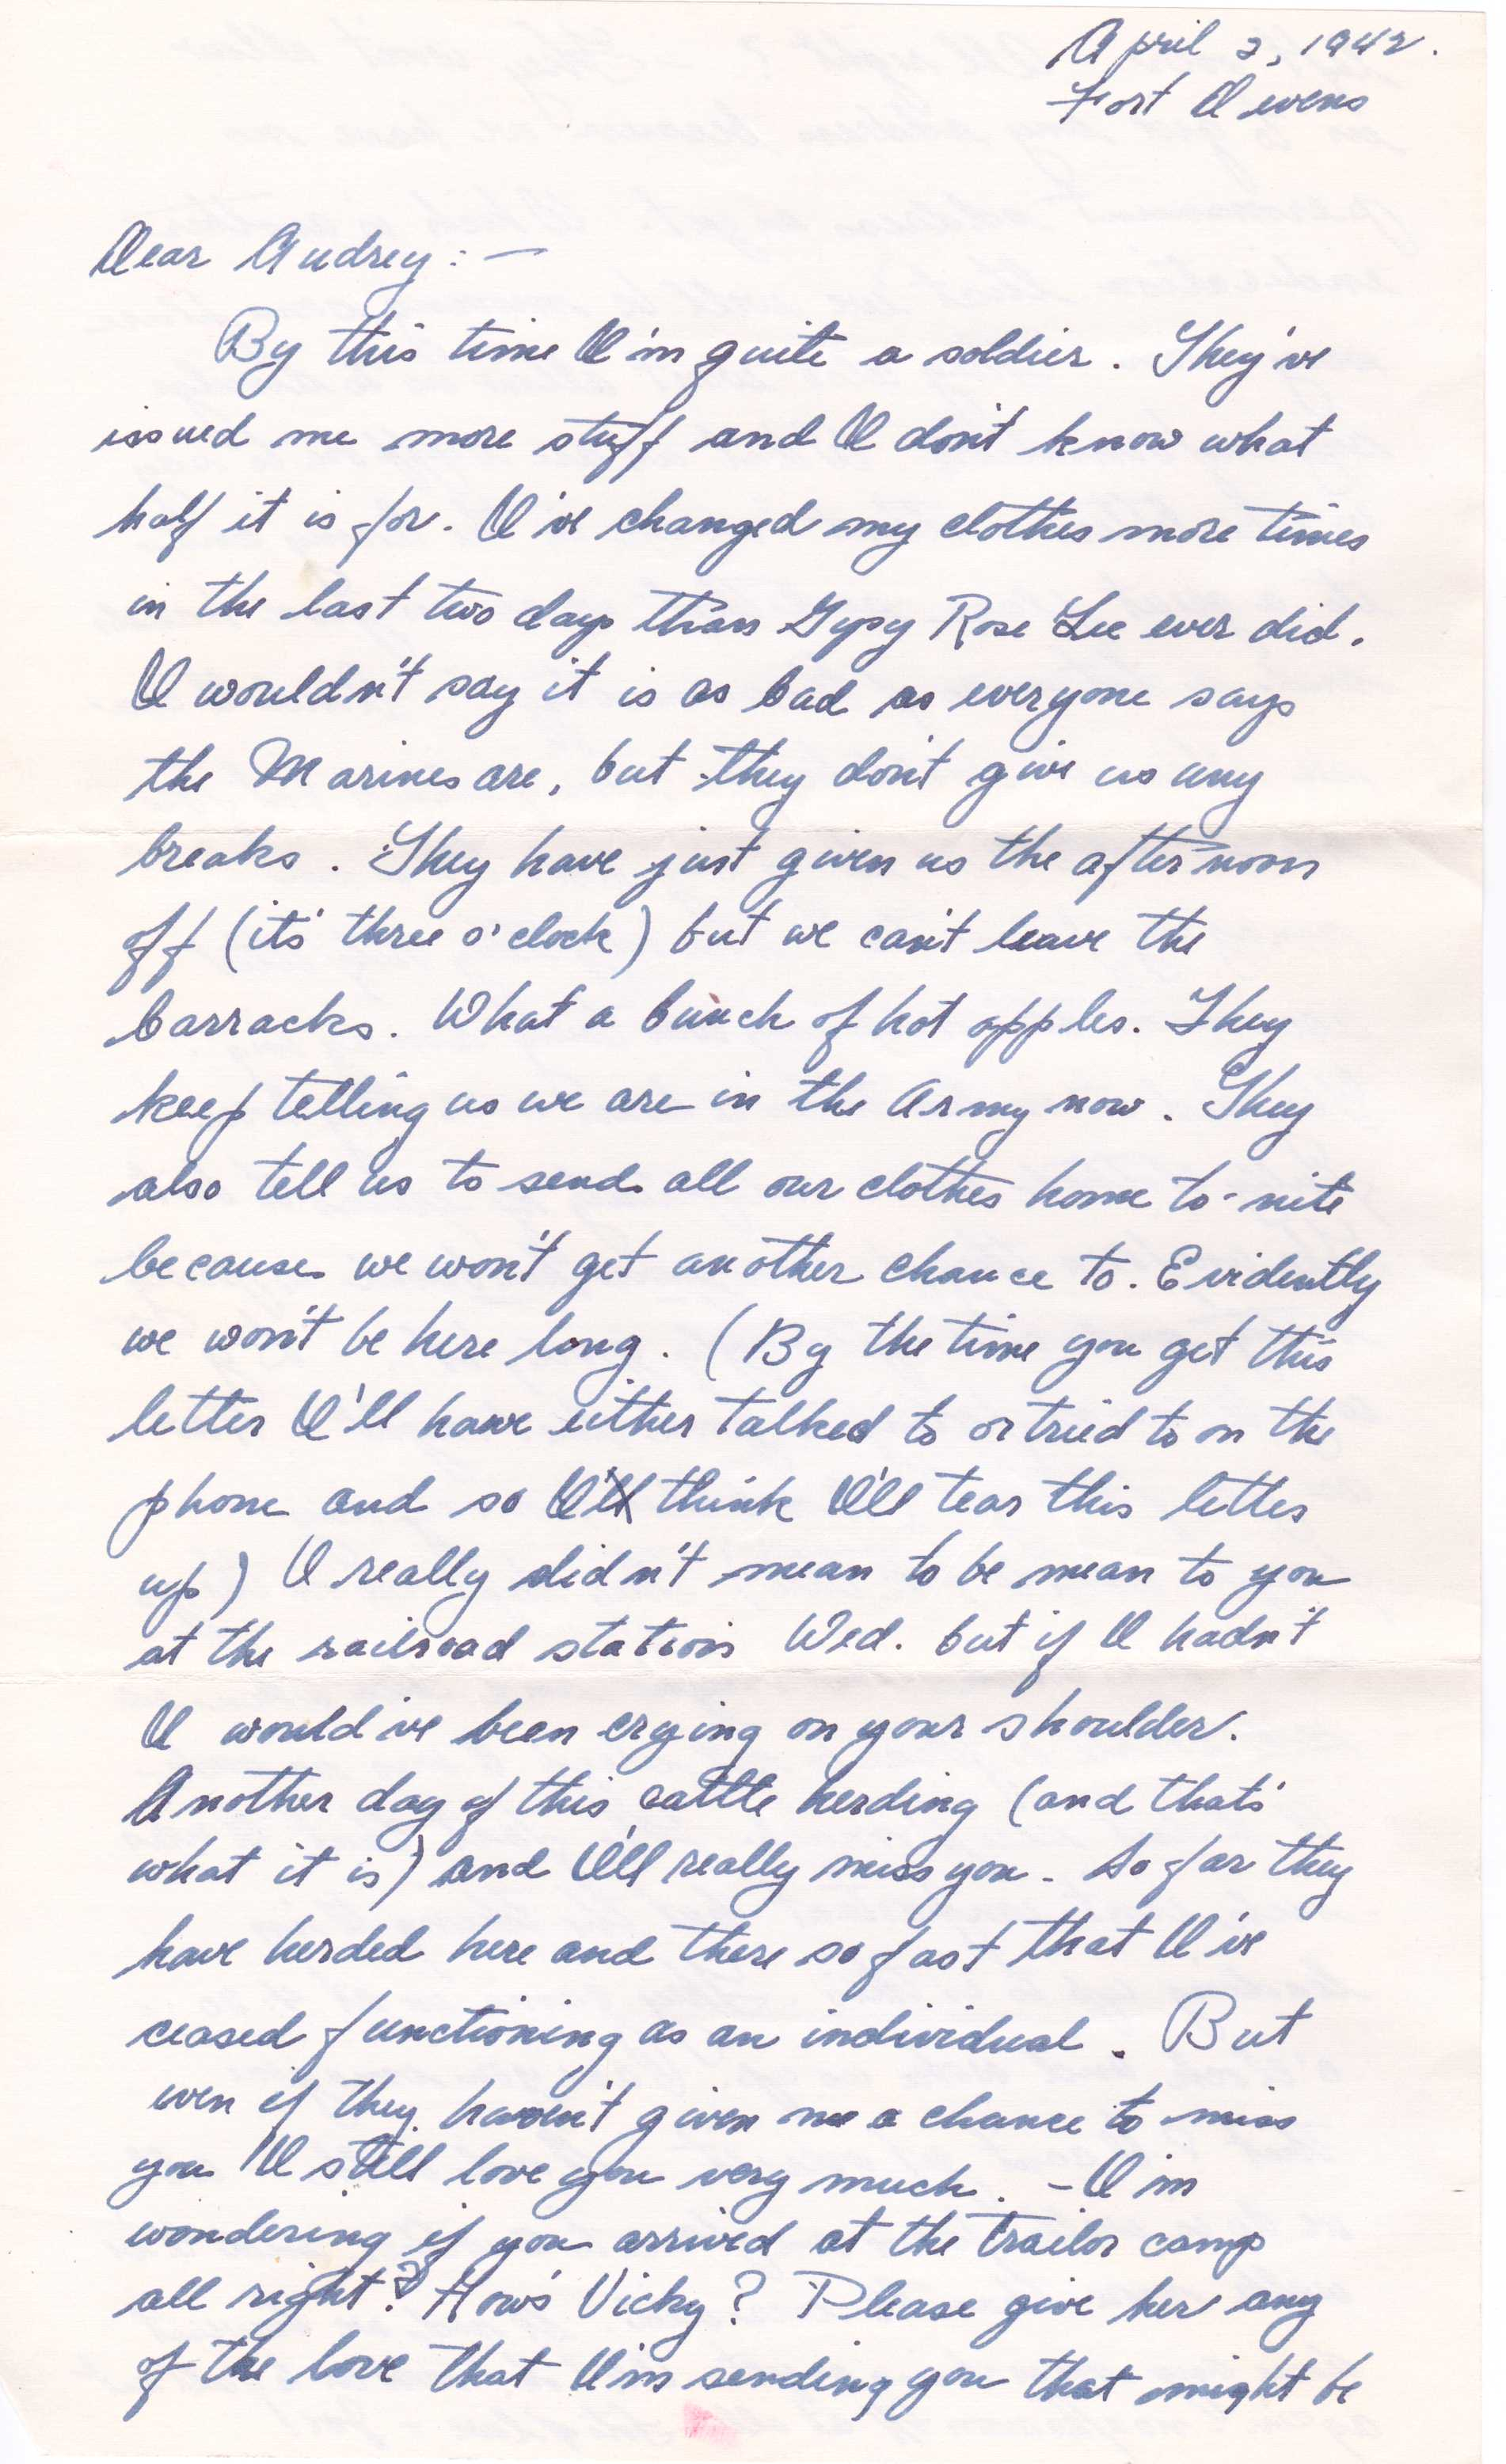 April 2, 1942.
Fort Devens
Dear Audrey: —
By this time I'm quite a soldier. They've
issued me more stuff and I don't know what
half it is for. I've changed my clothes more times
in the last two days than Gypsy Rose Lee ever did.
I wouldn't say it is as bad as everyone says
the Marines are, but they don't give us any
breaks. They have just given us the afternoon
off (it's three o'clock) but we can't leave the
barracks. What a bunch of hot apples. They
keep telling us we are in the Army now. They
also tell us to send all our clothes home to-nite
because we won't get another chance to. Evidently
we won't be here long. (By the time you get this
letter I'll have either talked to or tried to on the
phone and so I'll think I'll tear this letter
up) I really didn't mean to be mean to you
at the railroad station Wed. but if I hadn't
I would've been crying on your shoulder.
Another day of this cattle herding (and that's
what it is) and I'll really miss you. So far they
have herded here and there so fast that I've
ceased functioning as an individual. But
even if they haven't given me a chance to miss
you I still love you very much. - I'm
wondering if you arrived at the trailor camp
all right? How's Vicky? Please give her any
of the love that I'm sending you that might be